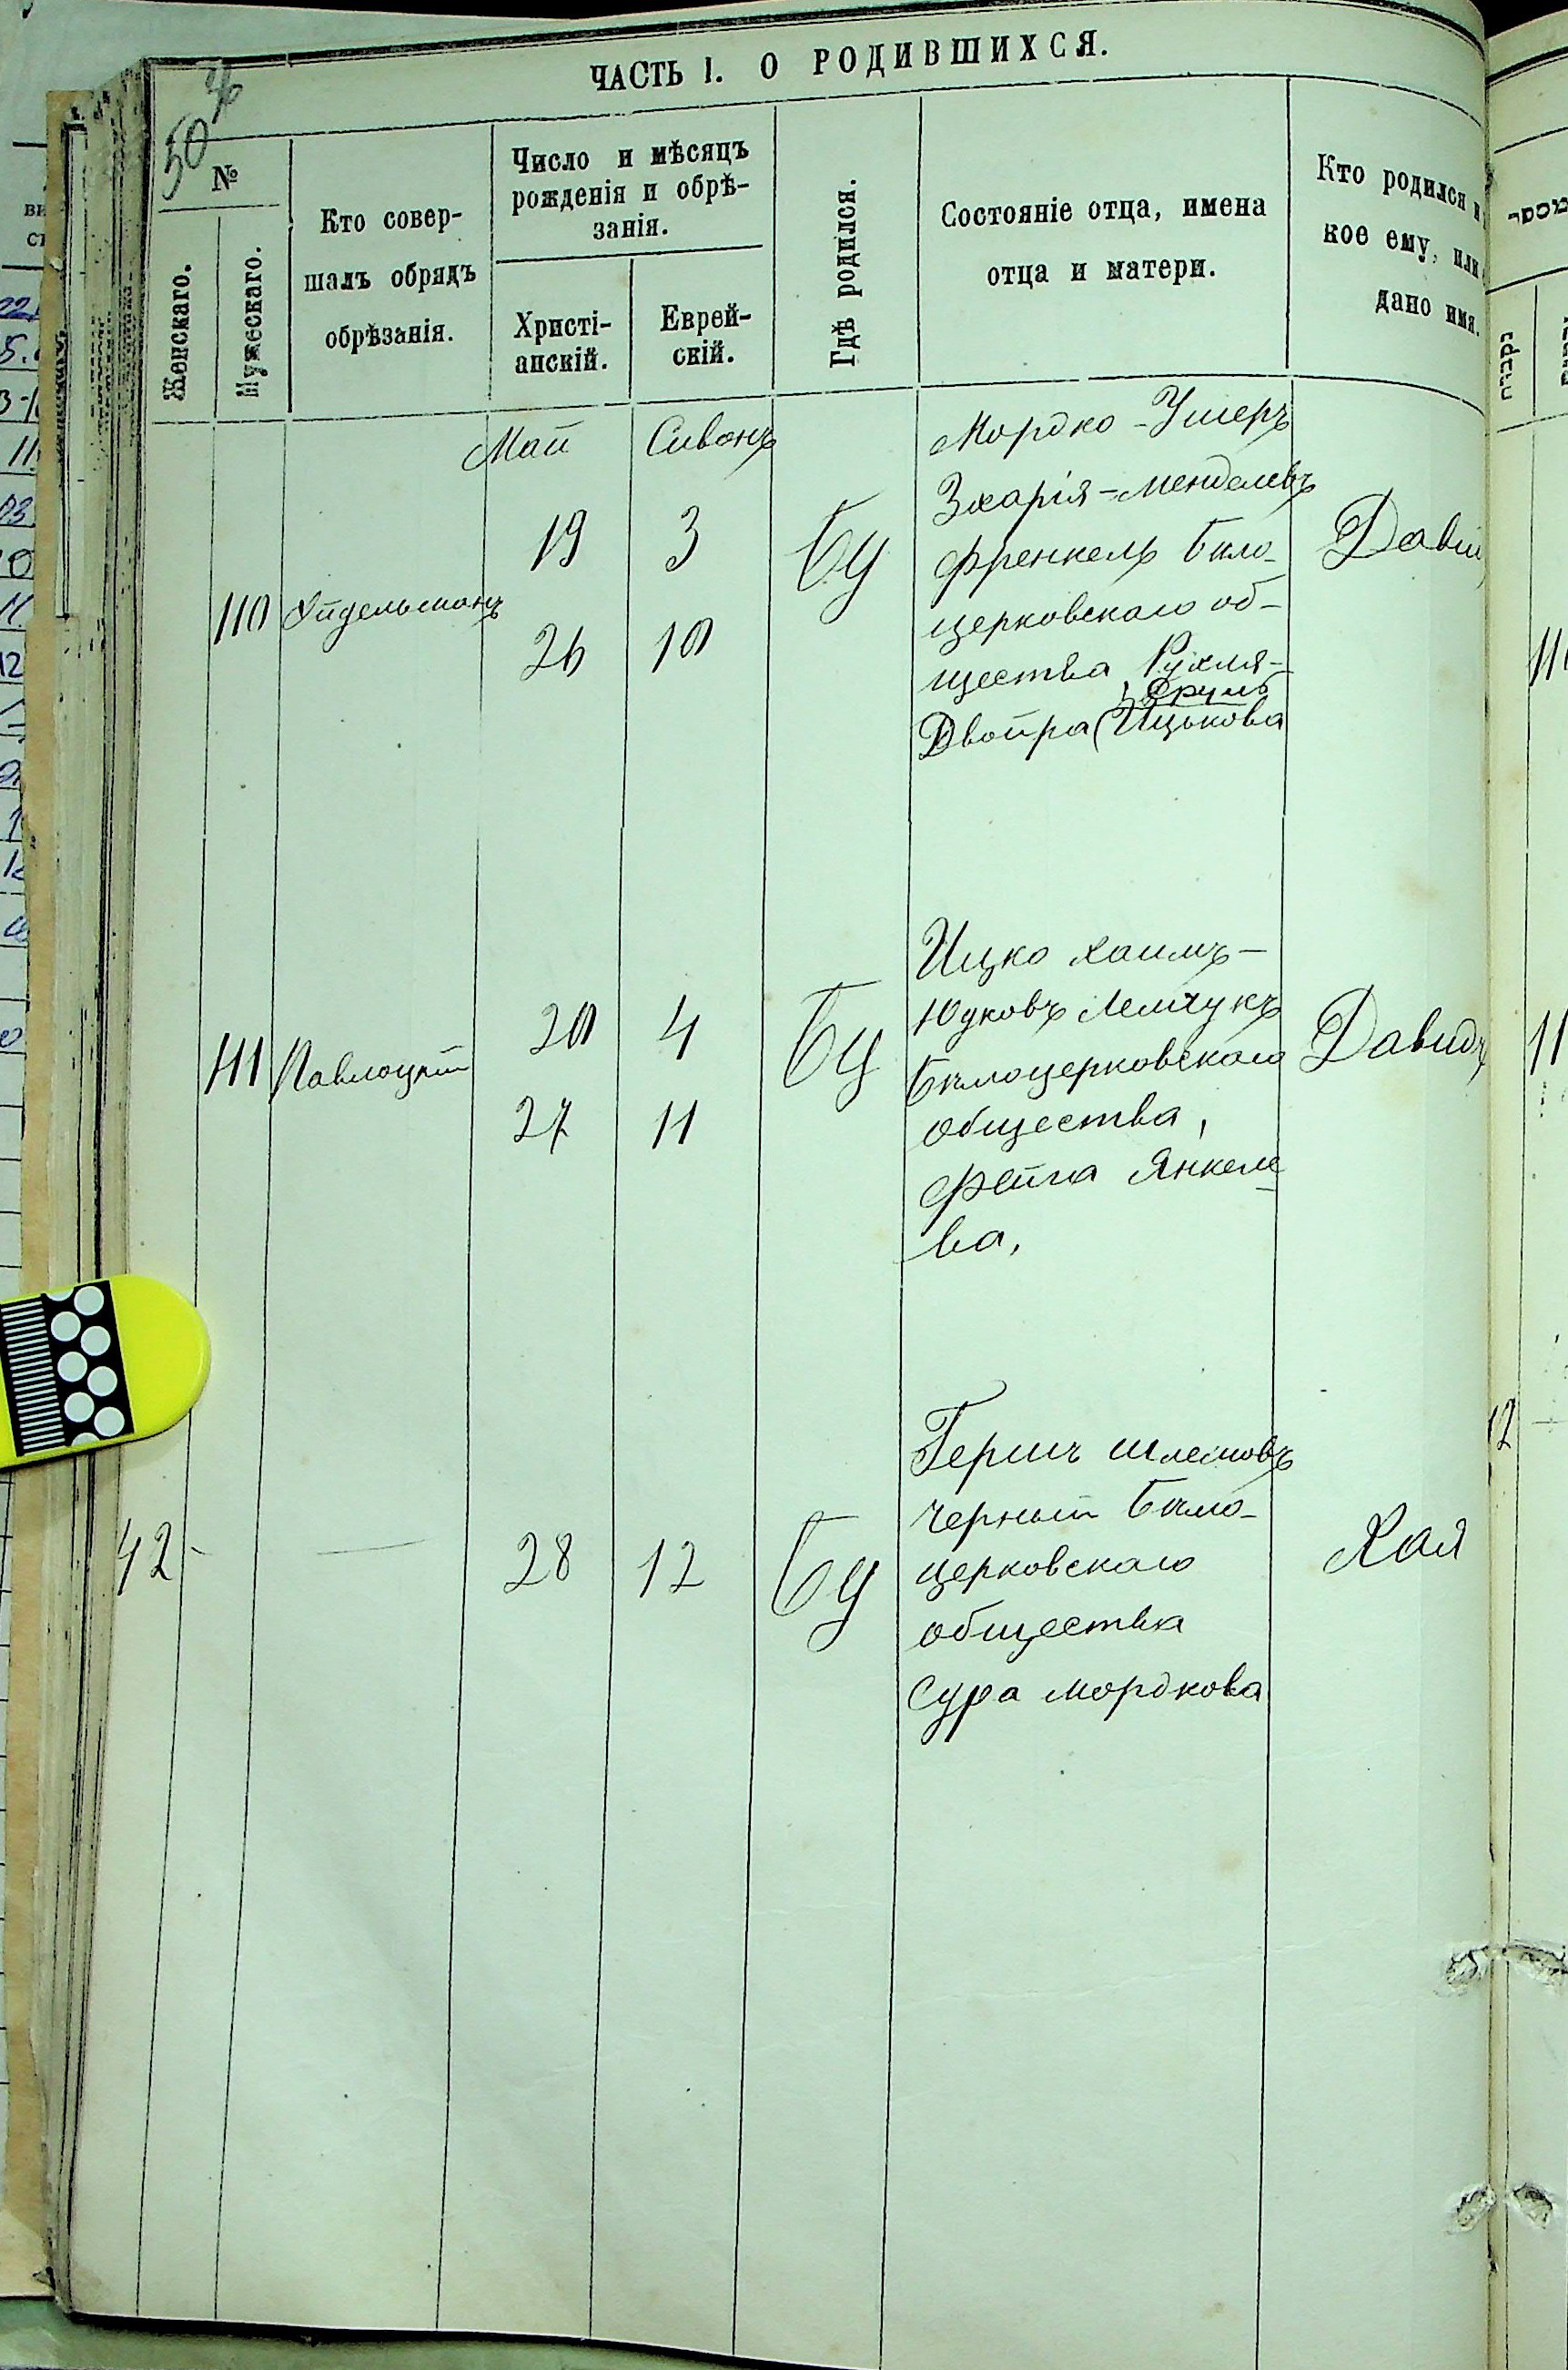 ЧАСТЬ I. О РОДИВШИХСЯ.
50
№
Женскаго.
Мужескаго.
Кто совер-
шалъ обрядъ
обрѣзанія.
Число и мѣсяцъ
рожденія и обрѣ-
занія.
Христі-
анскій.
Еврей-
скій.
Гдѣ родился.
Состояніе отца, имена
отца и матери.
Кто родился и
кое ему, или
дано имя.
Май
Сивонъ
110
19
3
26
10
БЦ
Мордко-Ушеръ
Зхарія-Менделевъ
Френкель Бѣло-
церковскаго об-
щества, Рухля-
Сруль
Двойра (Ицькова
Дави
111
Павлоцкій
20
4
27
11
БЦ
Ицко Хаимъ-
Юдковъ Лемчукъ
Бѣлоцерковскаго
общества,
Фейга Янкеле-
ва,
Давидъ
42
-
28
12
БЦ
Гершъ Шлемовъ
Черный Бѣло-
церковскаго
общества
Сура Мордкова
Хая